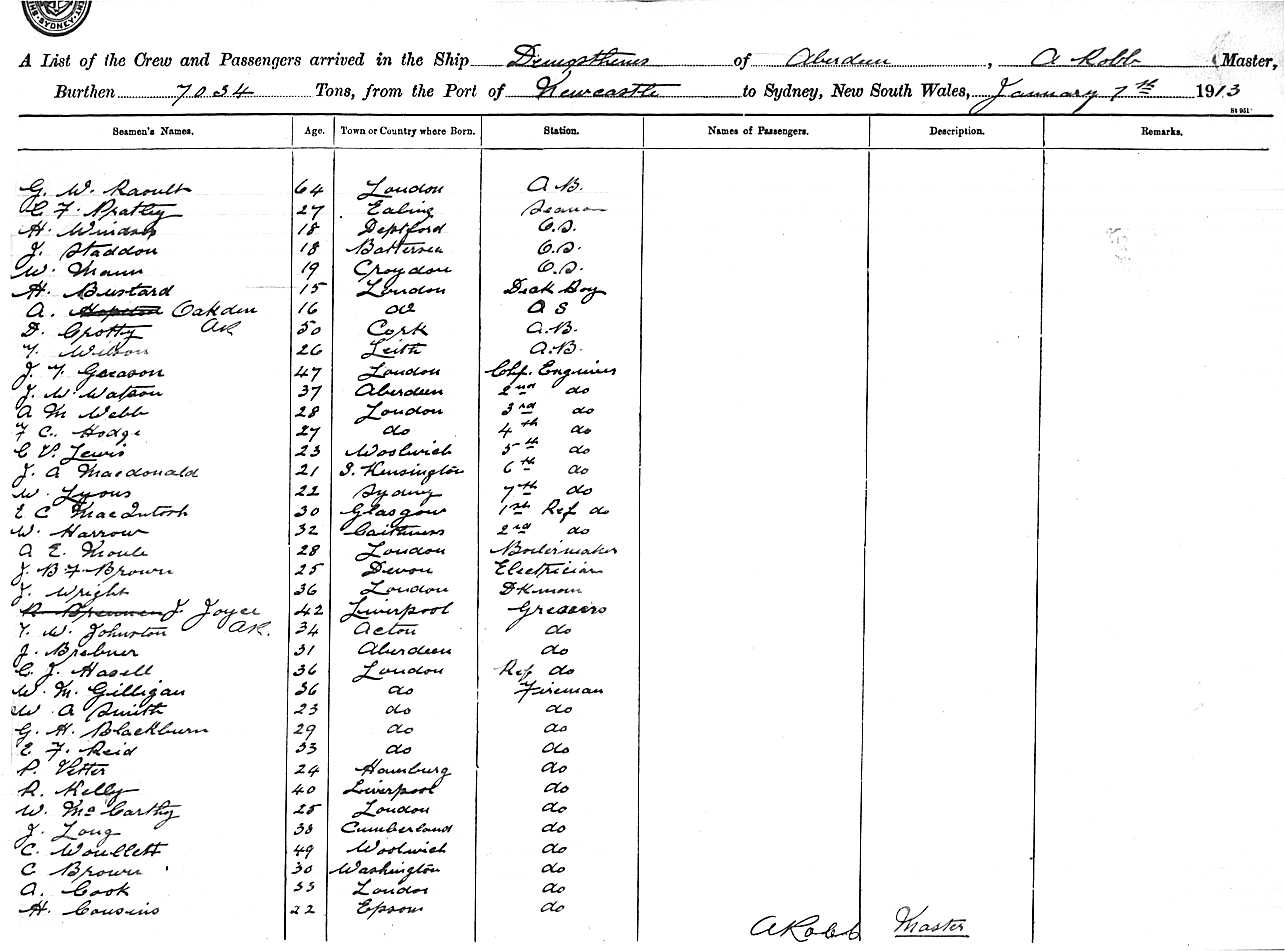 SYDNEY
A List of the Crew and Passengers arrived in the Ship Demosthenes of Aberdeen, A Robb Master,
Burthen 7034 Tons, from the Port of Newcastle to Sydney, New South Wales, January 7th 1913
St 951
Seamen's Names. Age. Town or Country where Born. Station. Names of Passengers. Description. Remarks.
G. W. Raoult 64 London A.B.
C F. Pratley 27 Ealing Seaman
H. Windsor 18 Deptford O.S.
J. Staddon 18 Battersea O.S.
W. Mann 19 Croydon O.S.
H. Bustard 15 London Deck Boy
A. Oakden 16 do A S
D. Crotty AR 50 Cork A.B.
T. Wilson 26 Leith A.B.
J. T. Greason 47 London Chf. Engineer
J. W. Watson 37 Aberdeen 2nd do
A M Webb 28 London 3rd do
F C. Hodge 27 do 4th do
C V. Lewis 23 Woolwich 5th do
J. A Macdonald 21 S. Kensington 6th do
W. Lyons 22 Sydney 7th do
E C MacIntosh 30 Glasgow 1st Ref do
W. Harrow 32 Caithness 2nd do
A E. Moule 28 London Boilermaker
J. B F Brown 25 Devon Electrician
J. Wright 36 London Dkman
J. Joyce 42 Liverpool Greasers
T. W. Johnston AR. 34 Acton do
J. Brebner 31 Aberdeen do
C. J. Hasell 36 London Ref do
W. M. Gilligan 36 do Fireman
W A Smith 23 do do
G. H. Blackburn 29 do do
E F. Reid 33 do do
P. Vetter 24 Hamburg do
R. Kelly 40 Liverpool do
W. McCarthy 25 London do
J. Long 38 Cumberland do
C. Woullett 49 Woolwich do
C Brown 30 Washington do
A. Cook 33 London do
H. Cousins 22 Epsom do
A Robb Master